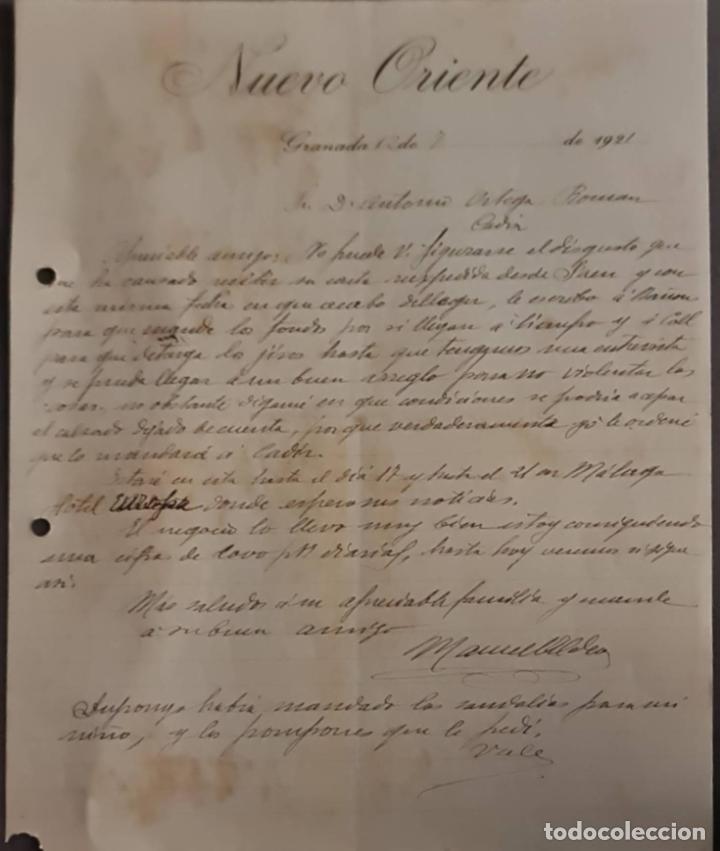 Nuevo Oriente
Granada 12 de 7 de 1921
Sr. D. Antonio Ortega Roman
Cadiz
Apreciable amigo: No puede V. figurarse el disgusto que
me ha causado recibir su carta reexpedida desde Jaen y con
esta misma fecha en que acabo de llegar, le escribo á
para que mande los fondos por si llegan á tiempo y á Coll
para que detenga los jiros hasta que tengamos una entrevista
y se pueda llegar á un buen arreglo para no violentar las
cosas. no obstante digame en que condiciones se podria
el calzado dejado de cuenta, porque verdaderamente yo le ordené
que lo mandará á Cadiz.
Estaré en esta hasta el dia 17 y hasta el 21 en Málaga
Hotel Europa donde espero sus noticias.
El negocio lo llevo muy bien estoy consiguiendo
una cifra de diarias, hasta hoy veremos si sigue
asi.
Mis saludos á su apreciable familia y mande
á su buen amigo
Manuel
Supongo habrá mandado las sandalias para mi
niño, y los pompones que le pedi.
Vale
todocoleccion
todocoleccion.net